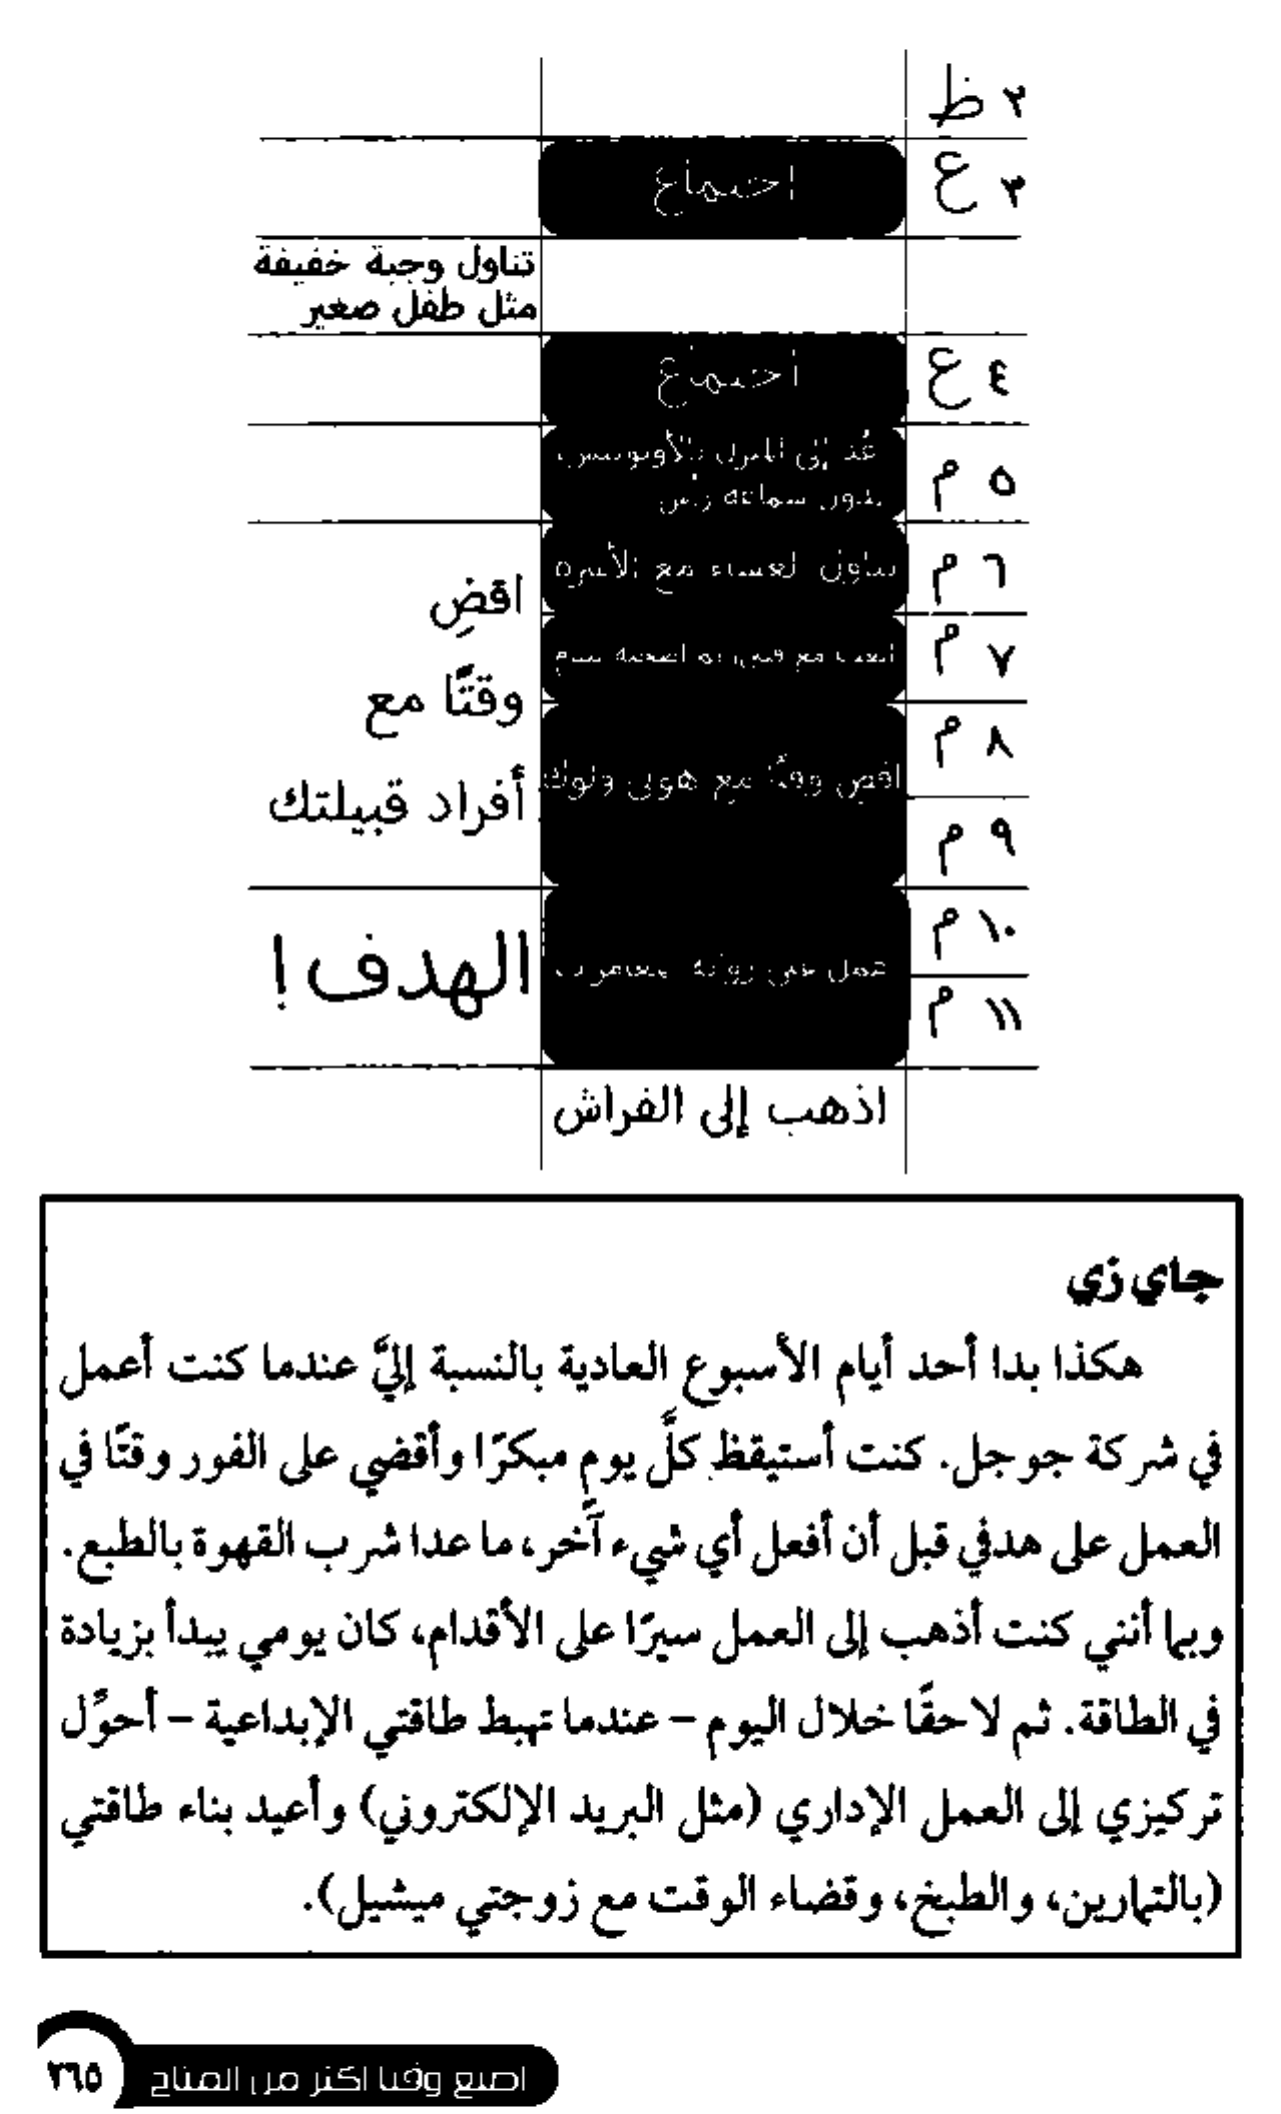 ٢ ظ
٣ ع اجتماع
تناول وجبة خفيفة
مثل طفل صغير
٤ ع اجتماع
٥ م عُد إلى المنزل بالأوتوبيس
بدون سماعة رأس
٦ م تناول العشاء مع الأسرة
٧ م
اقضِ
وقتًا مع
أفراد قبيلتك
٨ م اقض وقتًا مع هولي ولوك
٩ م
١٠ م
الهدف!
عمل على رواية
١١ م
اذهب إلى الفراش
جاي زي
هكذا بدا أحد أيام الأسبوع العادية بالنسبة إليَّ عندما كنت أعمل
في شركة جوجل. كنت أستيقظ كلَّ يوم مبكرًا وأقضي على الفور وقتًا في
العمل على هدفي قبل أن أفعل أي شيء آخر، ما عدا شرب القهوة بالطبع.
وبما أنني كنت أذهب إلى العمل سيرًا على الأقدام، كان يومي يبدأ بزيادة
في الطاقة. ثم لاحقًا خلال اليوم – عندما تهبط طاقتي الإبداعية – أحوِّل
تركيزي إلى العمل الإداري (مثل البريد الإلكتروني) وأعيد بناء طاقتي
(بالتمارين، والطبخ، وقضاء الوقت مع زوجتي ميشيل).
اصنع وقتا أكثر من المتاح
٣٦٥